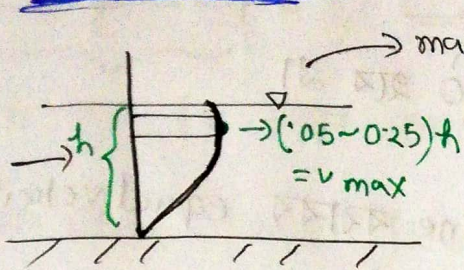 ma
h
→ (.05~0.25)h
= v max